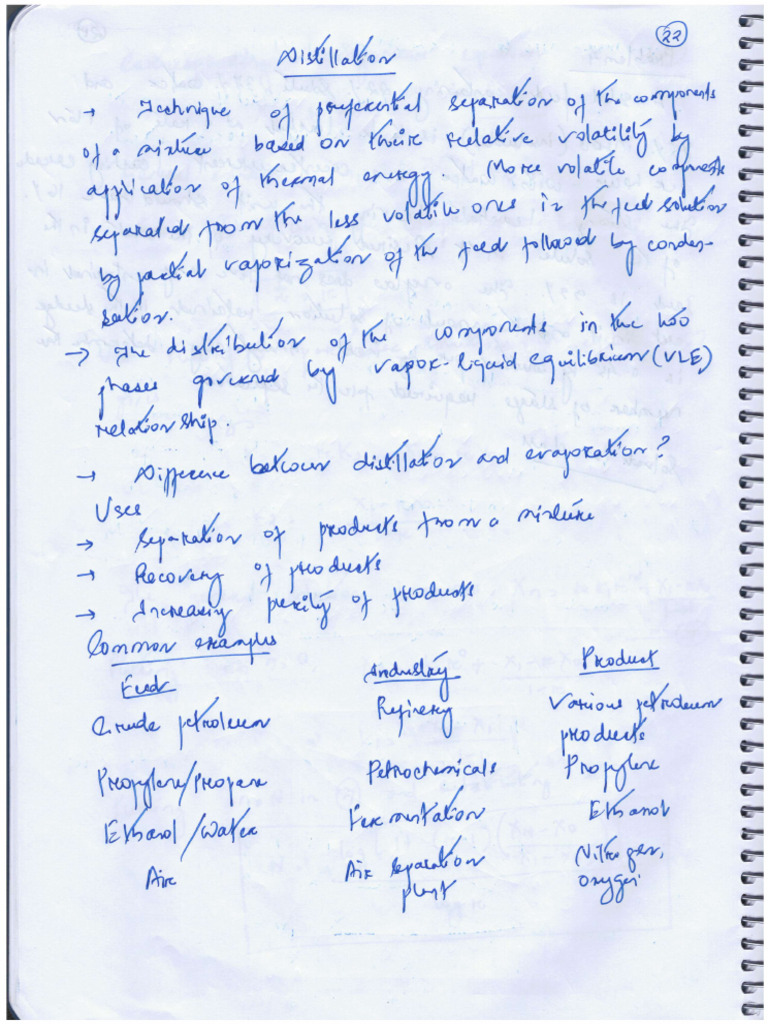 22
Distillation
→ Technique of preferential separation of the components
of a mixture based on their relative volatility by
application of thermal energy. More volatile components
separated from the less volatile ones in the feed solution
by partial vaporization of the feed followed by conden-
sation.
→ The distribution of the components in the two
phases governed by vapor-liquid equilibrium (VLE)
relationship.
→ Difference between distillation and evaporation?
Uses
→ Separation of products from a mixture
→ Recovery of products
→ Increasing purity of products
Common examples
Feed Industry Product
Crude petroleum Refinery Various petroleum
products
Propylene/Propane Petrochemicals Propylene
Ethanol/Water Fermentation Ethanol
Air Air separation Nitrogen,
plant oxygen